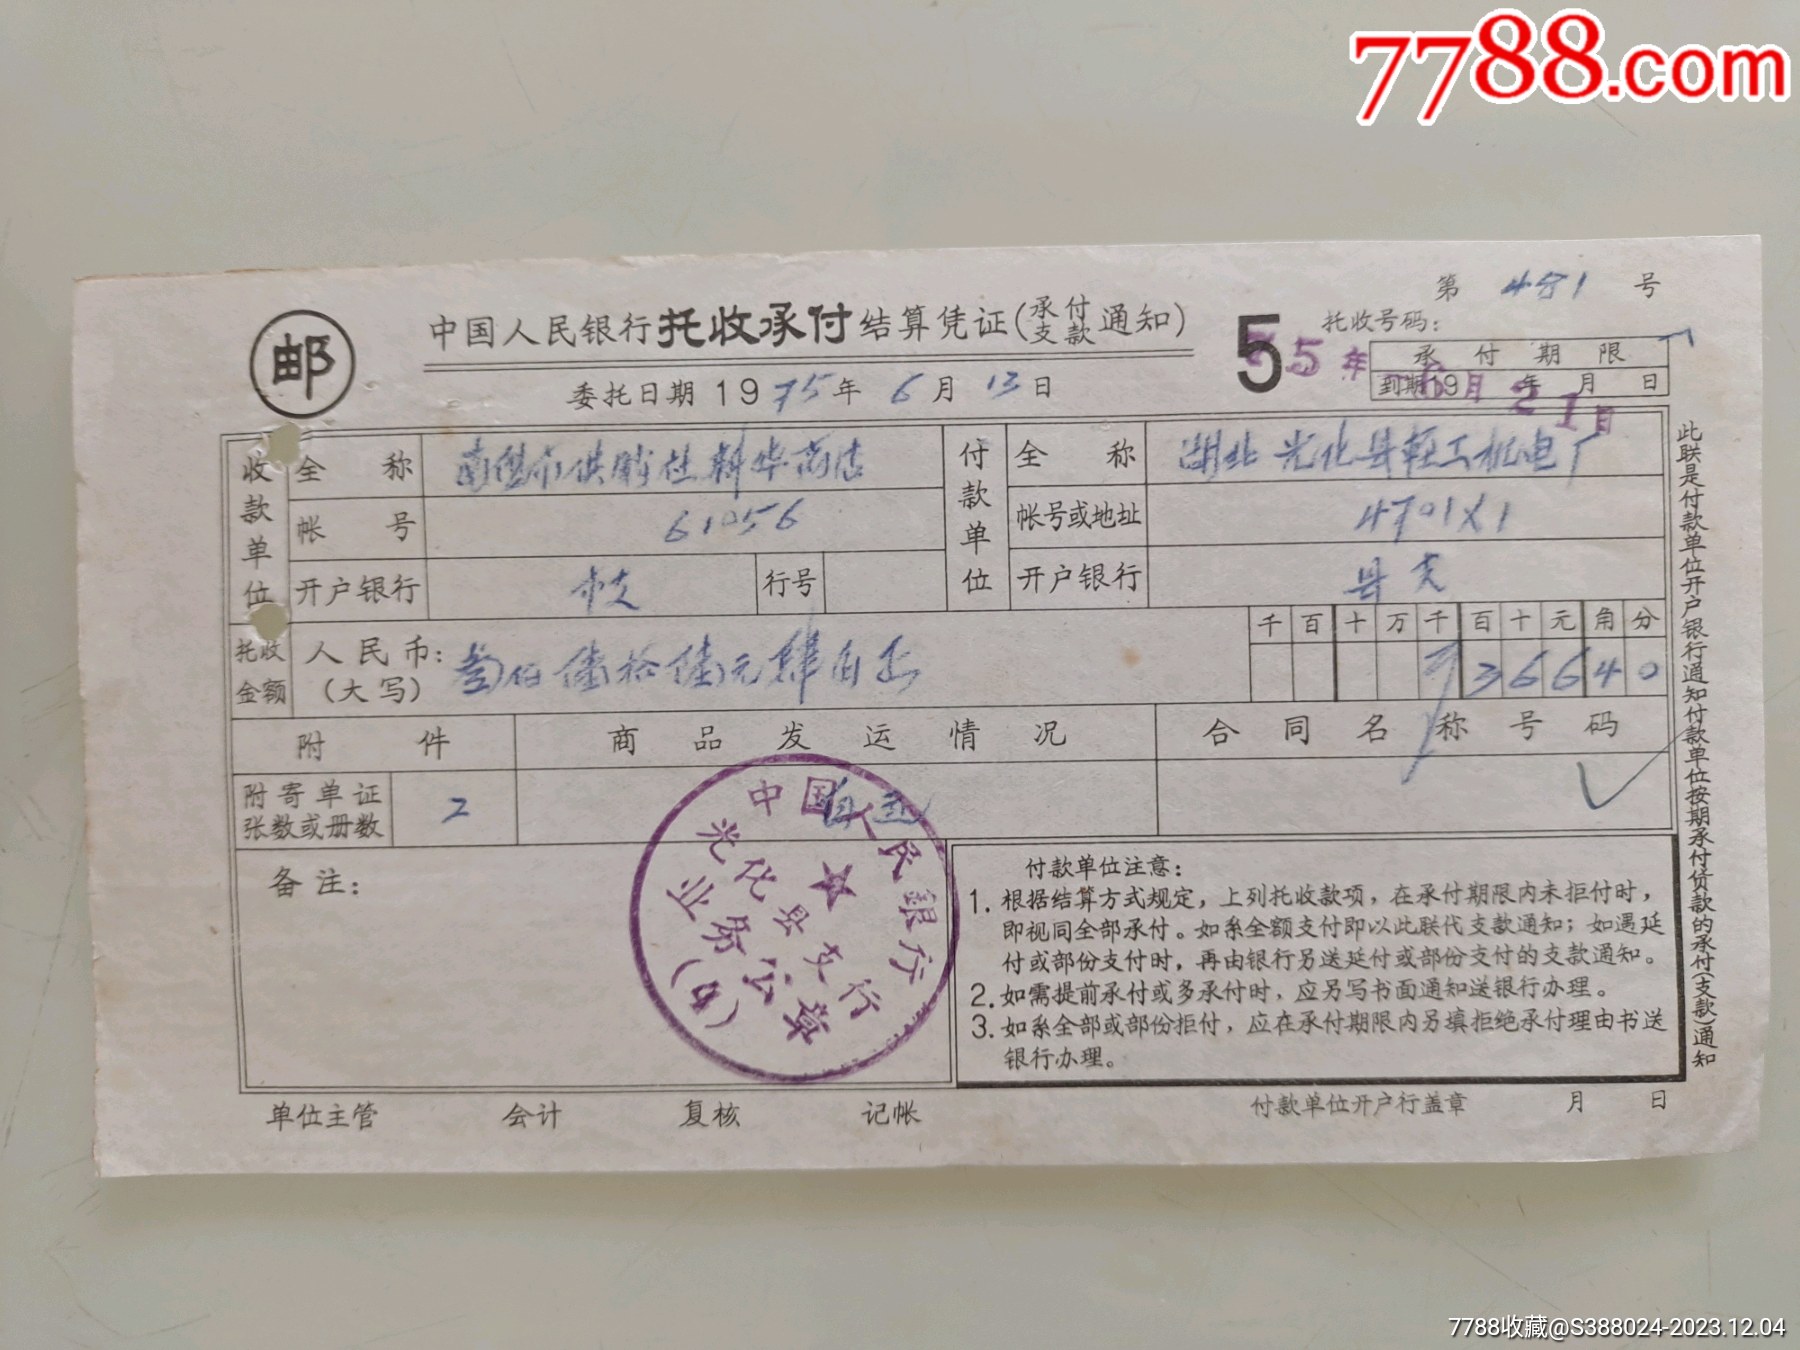 7788.com
第 481 号
邮
中国人民银行托收承付结算凭证(承付支款通知)
5
托收号码:
委托日期1975年6月13日
承付期限
到期19 年 月 日
75年6月21日
收款单位
全称
帐号 61056
开户银行 市支
行号
付款单位
全称 湖北光化县轻工机电厂
帐号或地址 4701X1
开户银行 县支
托收金额
人民币:(大写) 叁佰陆拾陆元肆角正
千百十万千百十元角分
¥36640
附件
商品发运情况
合同名称号码
附寄单证张数或册数
2
自运
备注:
中国人民银行
光化县支行
业务公章
(4)
付款单位注意:
1.根据结算方式规定,上列托收款项,在承付期限内未拒付时,
即视同全部承付。如系全额支付即以此联代支款通知;如遇延
付或部份支付时,再由银行另送延付或部份支付的支款通知。
2.如需提前承付或多承付时,应另写书面通知送银行办理。
3.如系全部或部份拒付,应在承付期限内另填拒绝承付理由书送
银行办理。
此联是付款单位开户银行通知付款单位按期承付货款的承付(支款)通知
单位主管 会计 复核 记帐
付款单位开户行盖章 月 日
7788收藏@S388024-2023.12.04